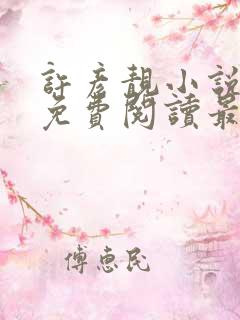 許彥靚小說
免費閱讀最
傅惠民